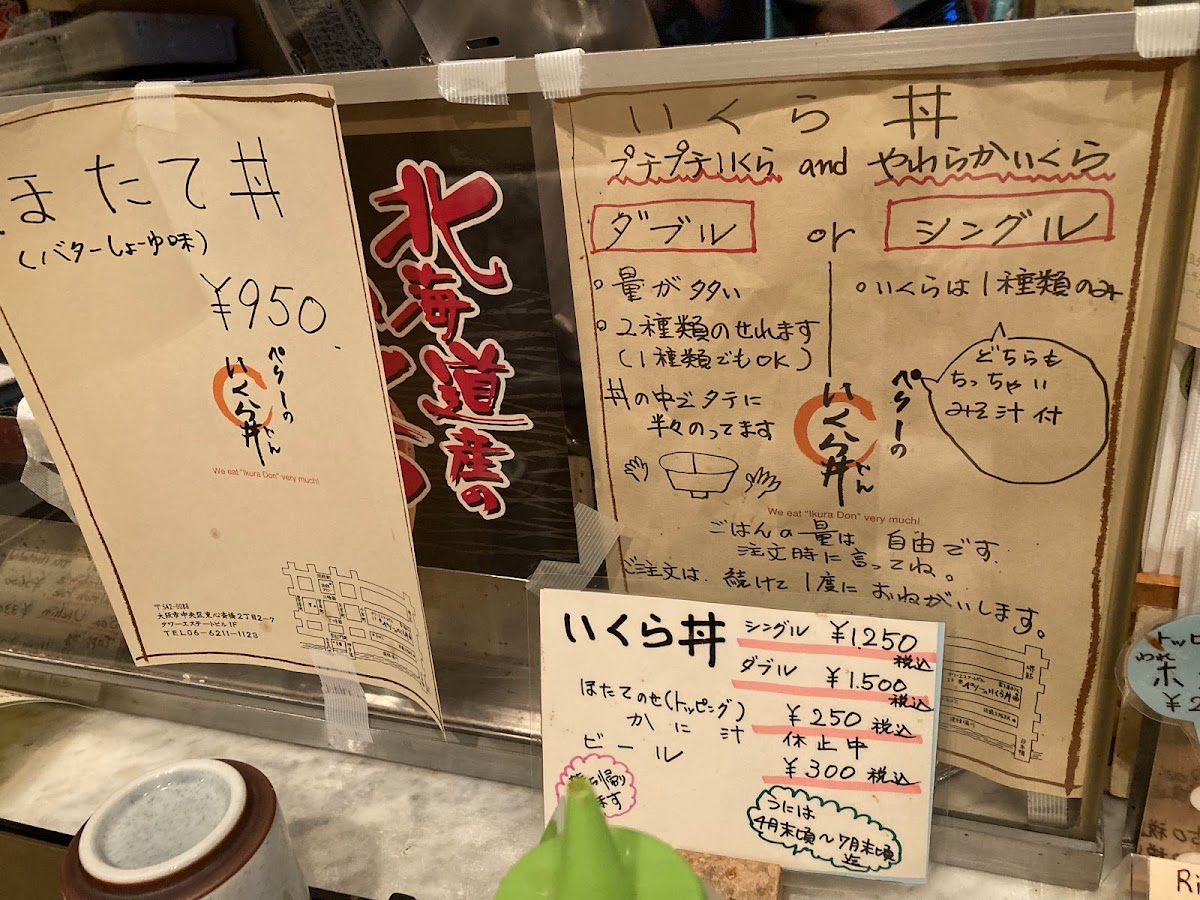 ほたて丼
(バターしょーゆ味)
¥950
ペリーの
いくら丼
どん
We eat "Ikura Don" very much!
〒542-0083
大阪市中央区東心斎橋2丁目2-7
タワーエステートビル1F
TEL06-6211-1123
北海道産の
いくら丼
プチプチいくら and やわらかいくら
ダブル or シングル
。量が多い
。2種類のせれます
(1種類でもOK)
丼の中でタテに
半々のってます
。いくらは1種類のみ
どちらも
ちっちゃい
みそ汁付
ペリーの
いくら丼
どん
We eat "Ikura Don" very much!
ごはんの量は 自由です.
注文時に言ってね。
ご注文は、続けて1度におねがいします。
いくら丼 シングル ¥1.250
税込
ダブル ¥1.500
税込
ほたてのせ(トッピング) ¥250 税込
かに汁 休止中
ビール ¥300 税込
うには
4月末頃〜7月末頃
迄